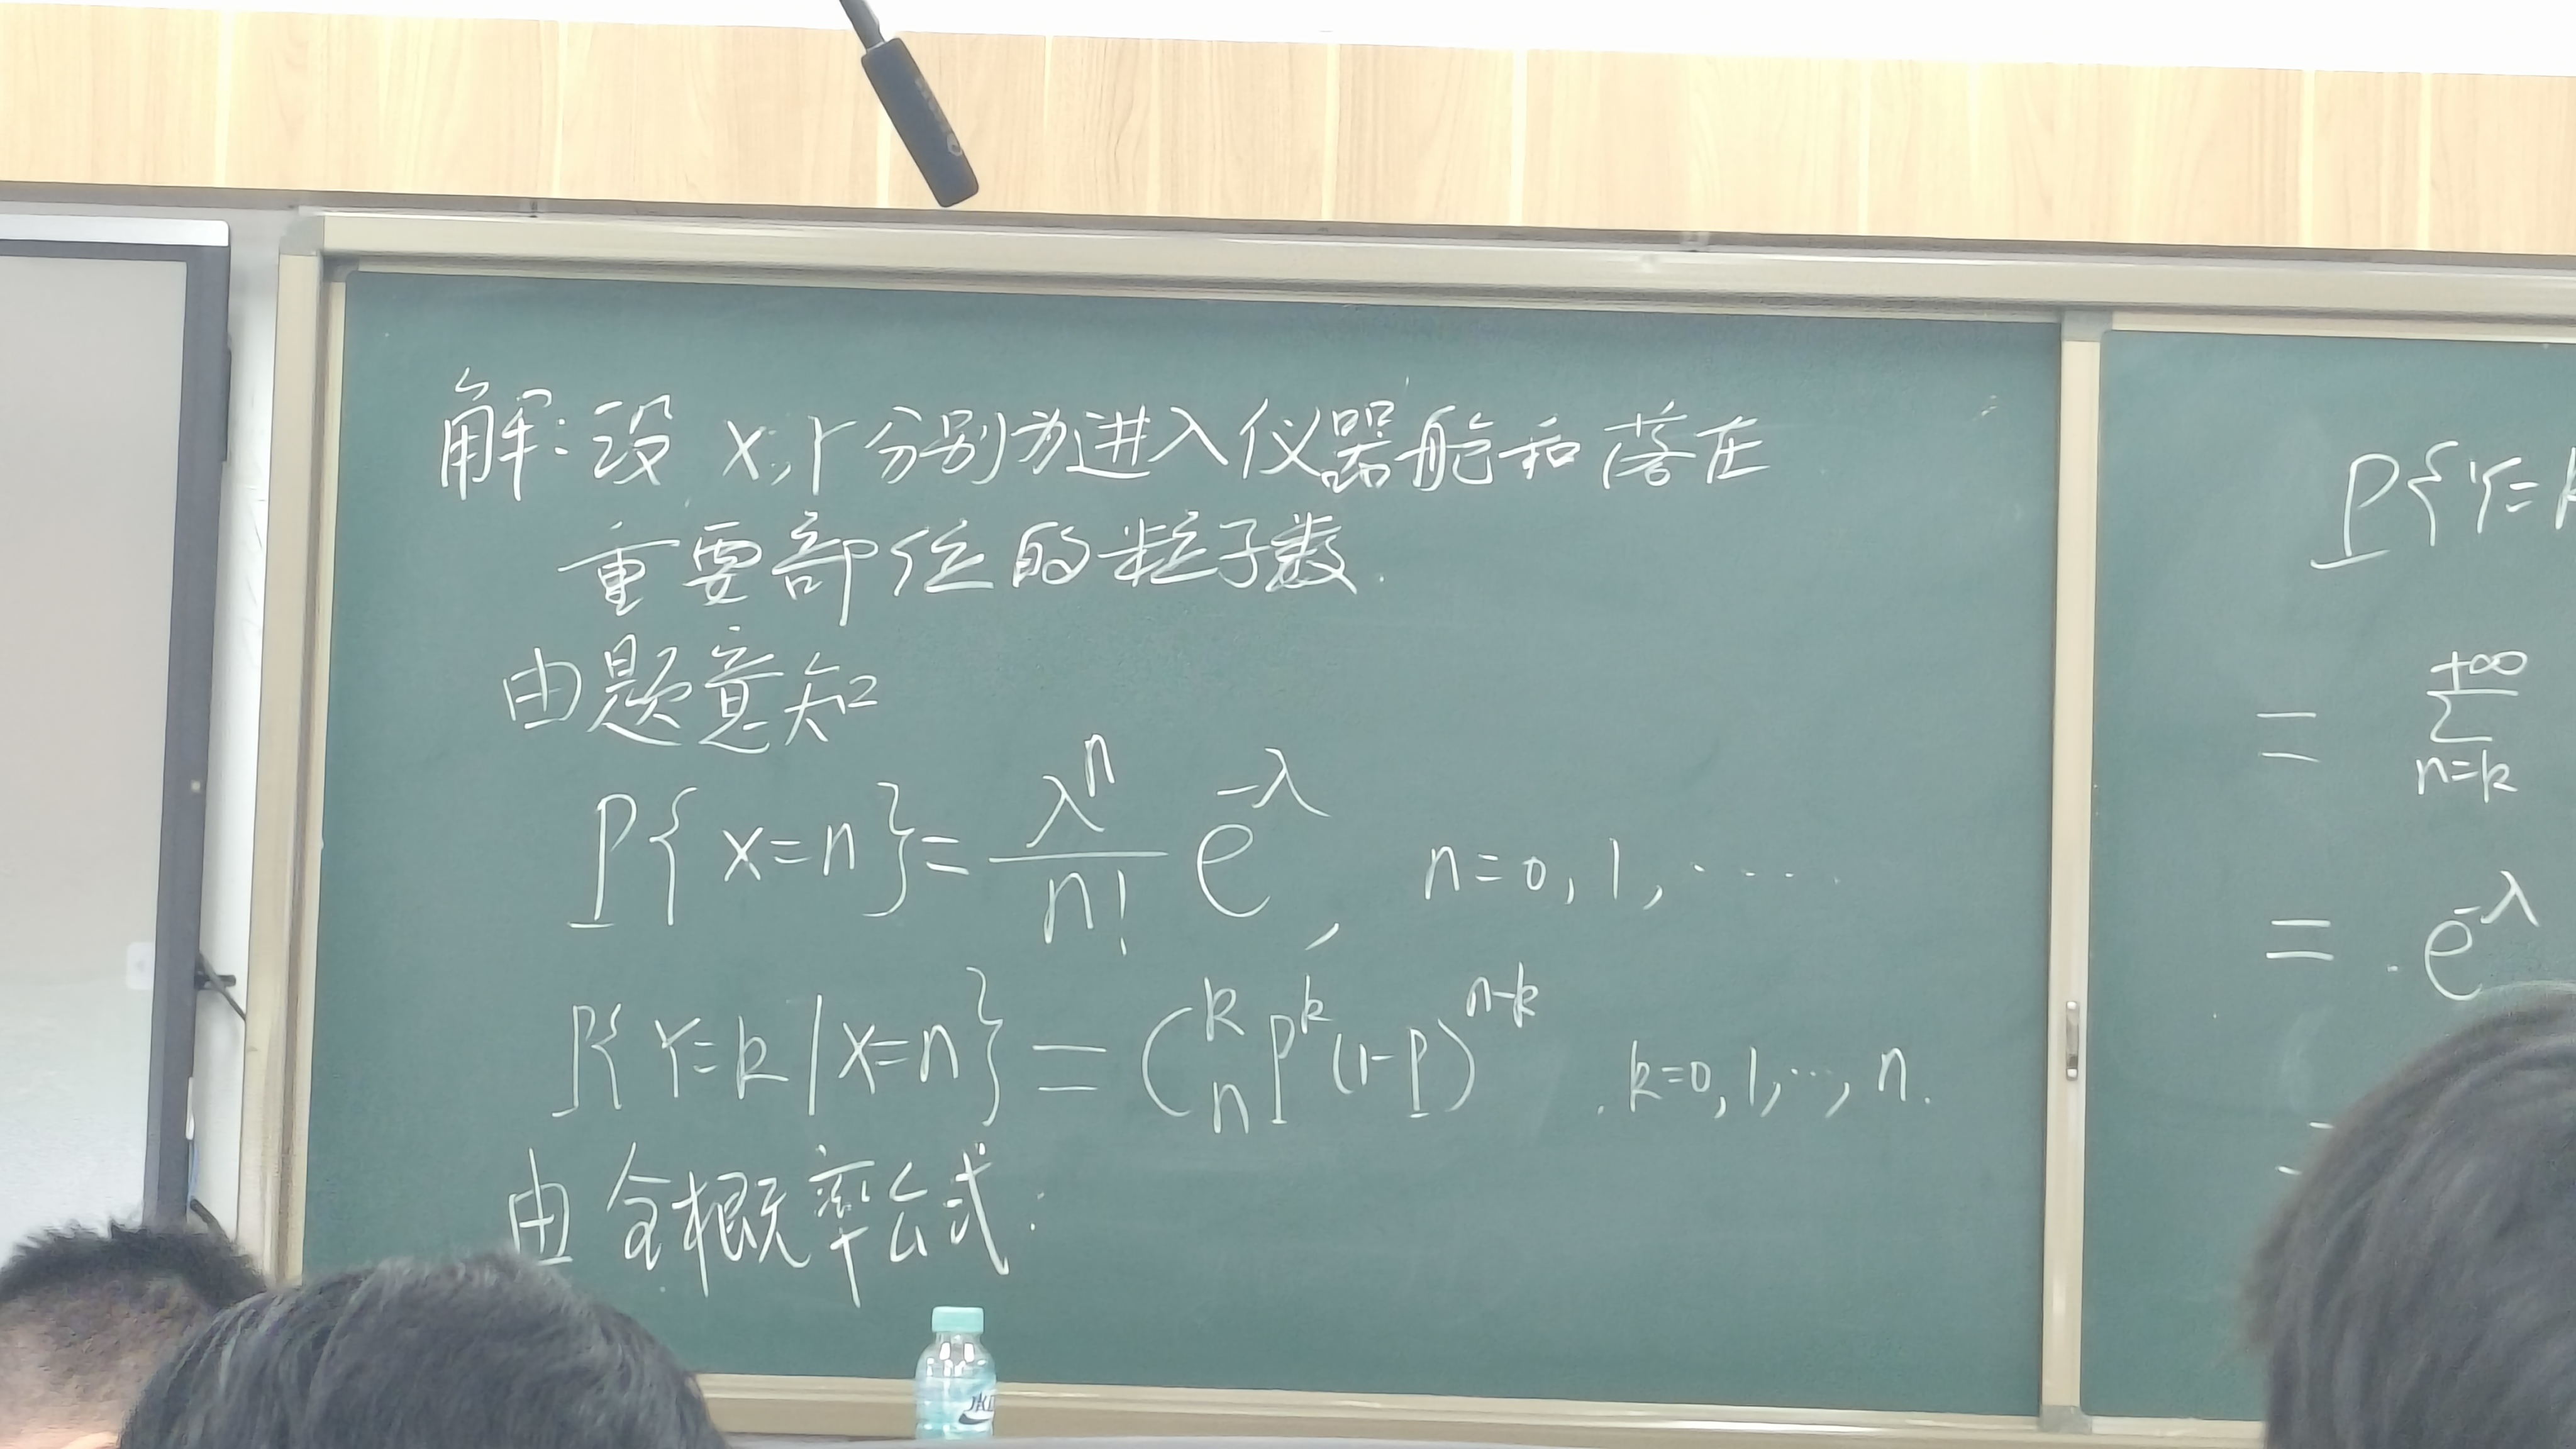 解: 设 X, Y 分别为进入仪器舱和落在
重要部位的粒子数.
由题意知
P{X=n}= λ^n/n! e^{-λ}, n=0,1,.....
P{Y=k|X=n} = C_n^k p^k (1-p)^{n-k}. k=0,1,…,n.
由全概率公式:
P{Y=k
= +∞ Σ n=k
= e^{-λ}
=